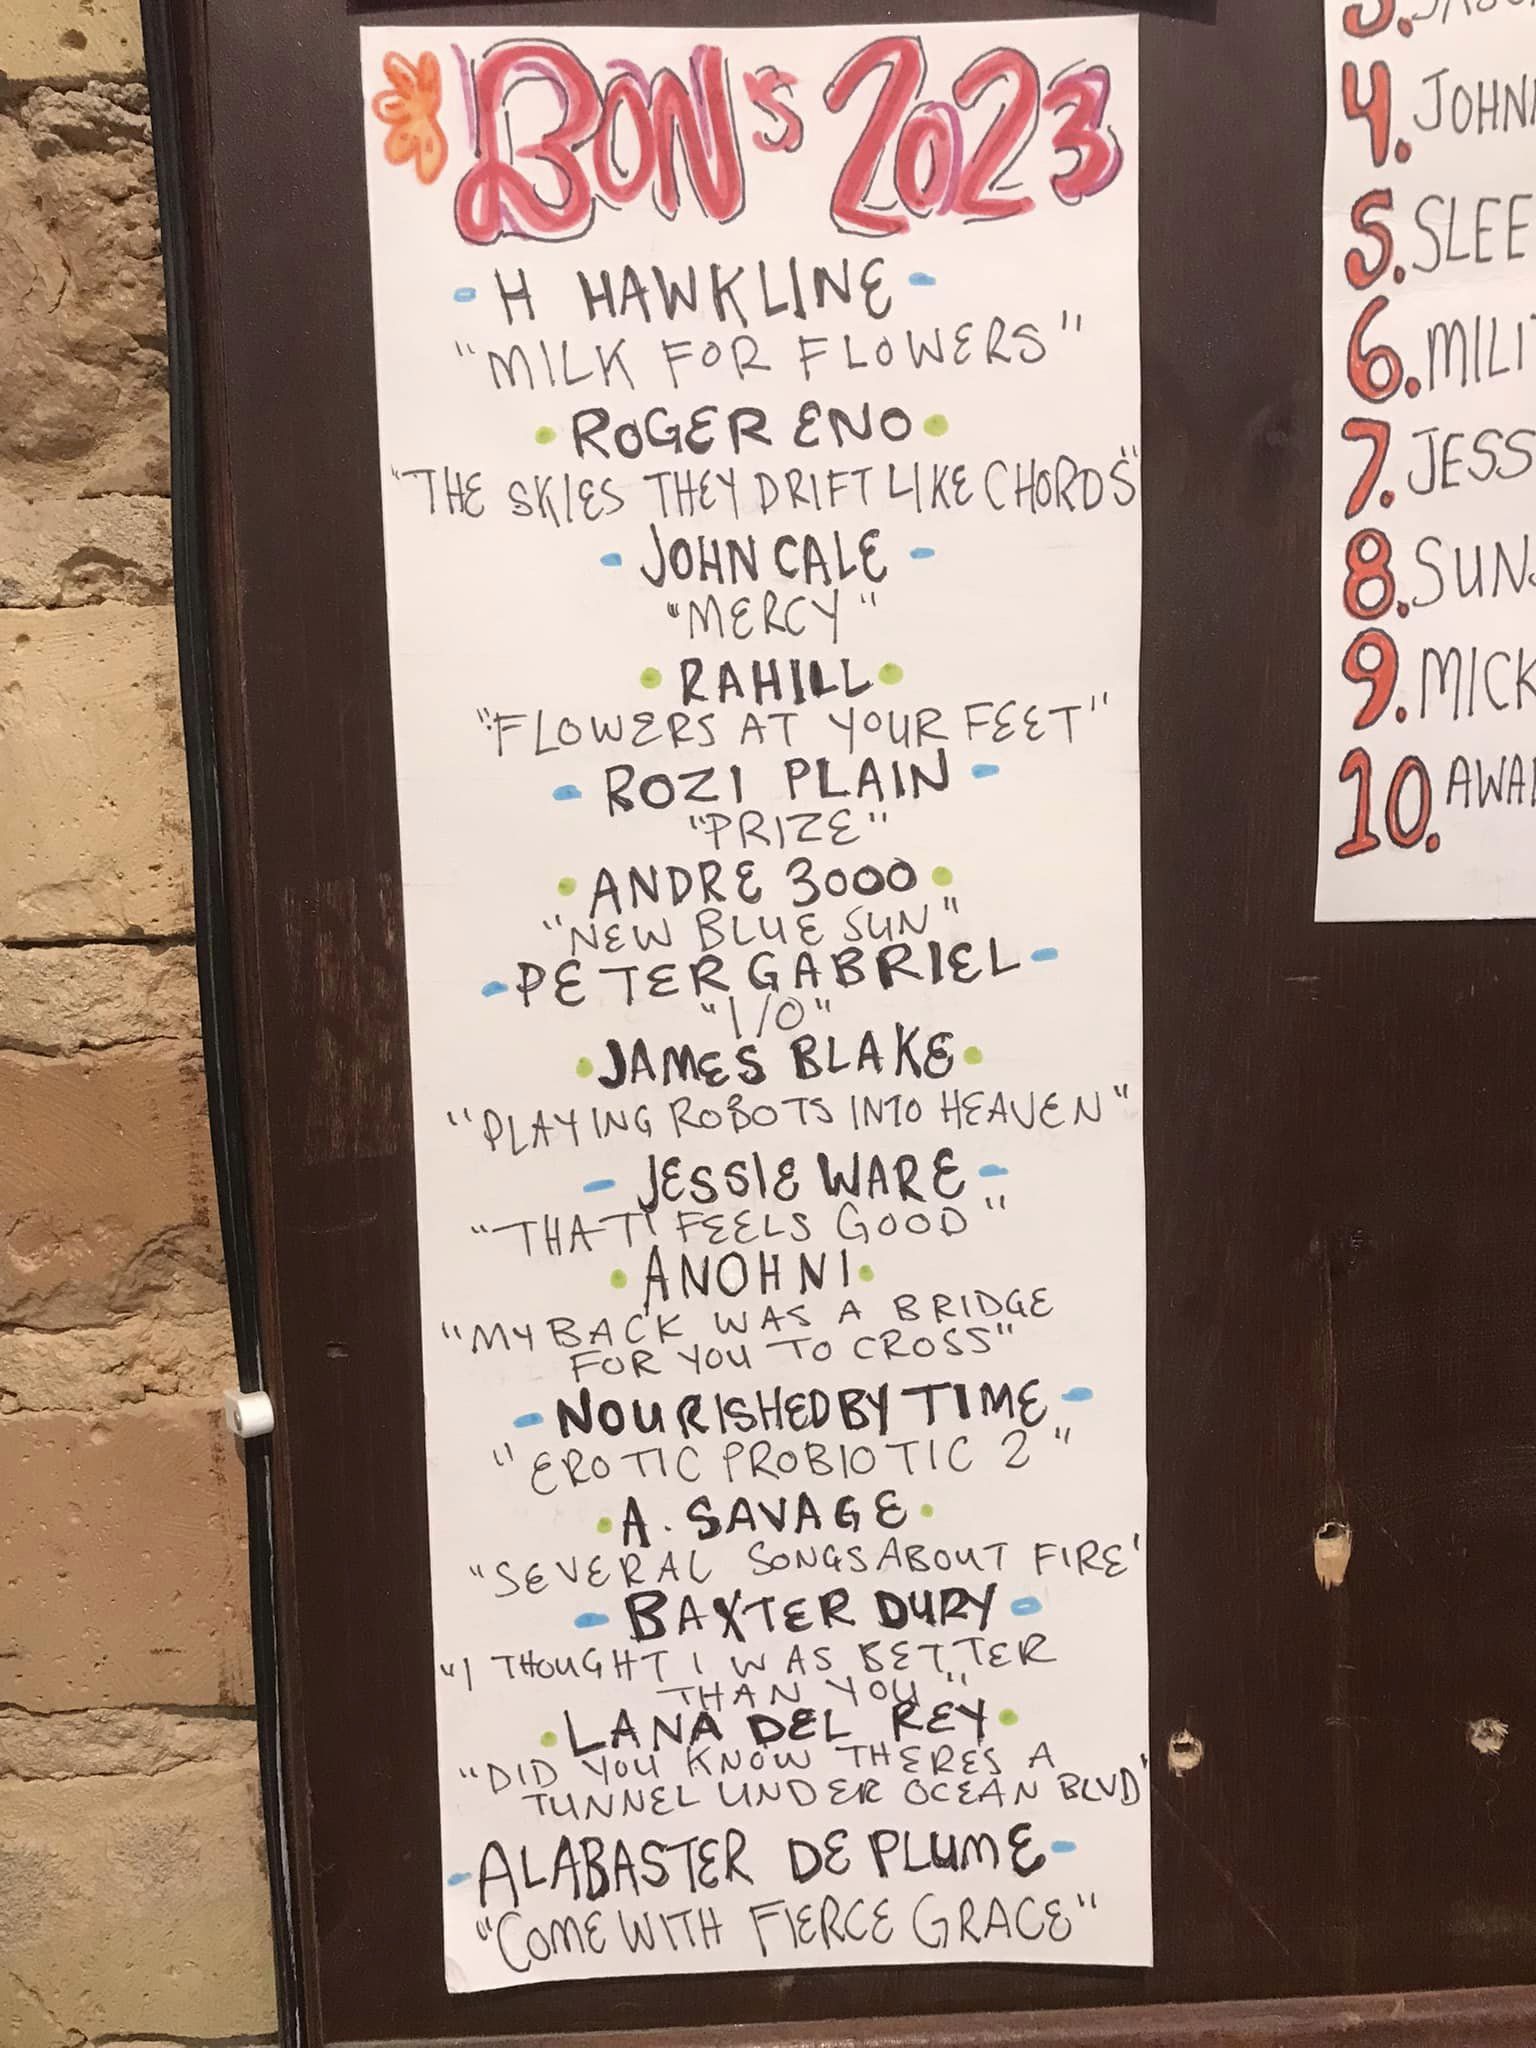 BON's 2023
- H HAWKLINE -
"MILK FOR FLOWERS"
• ROGER ENO •
"THE SKIES THEY DRIFT LIKE CHORDS"
- JOHN CALE -
"MERCY"
• RAHILL •
"FLOWERS AT YOUR FEET"
- ROZI PLAIN -
"PRIZE"
• ANDRE 3000 •
"NEW BLUE SUN"
- PETER GABRIEL -
"I/O"
• JAMES BLAKE •
"PLAYING ROBOTS INTO HEAVEN"
- JESSIE WARE -
"THAT! FEELS GOOD"
• ANOHNI •
"MY BACK WAS A BRIDGE
FOR YOU TO CROSS"
- NOURISHED BY TIME -
"EROTIC PROBIOTIC 2"
• A. SAVAGE •
"SEVERAL SONGS ABOUT FIRE'
- BAXTER DURY -
"I THOUGHT I WAS BETTER
THAN YOU"
• LANA DEL REY •
"DID YOU KNOW THERE'S A
TUNNEL UNDER OCEAN BLVD'
- ALABASTER DE PLUME -
"COME WITH FIERCE GRACE"
3.
4. JOHN
5. SLEE
6. MILI
7. JESS
8. SUN
9. MICK
10. AWA